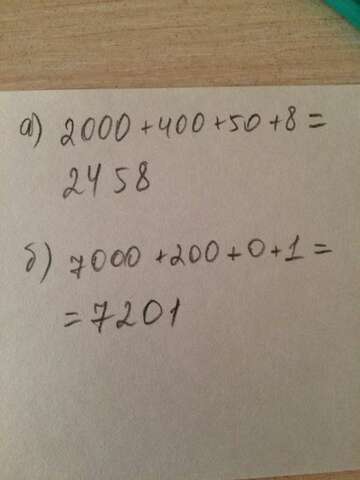 а) 2000+400+50+8=
2458
б) 7000+200+0+1=
=7201